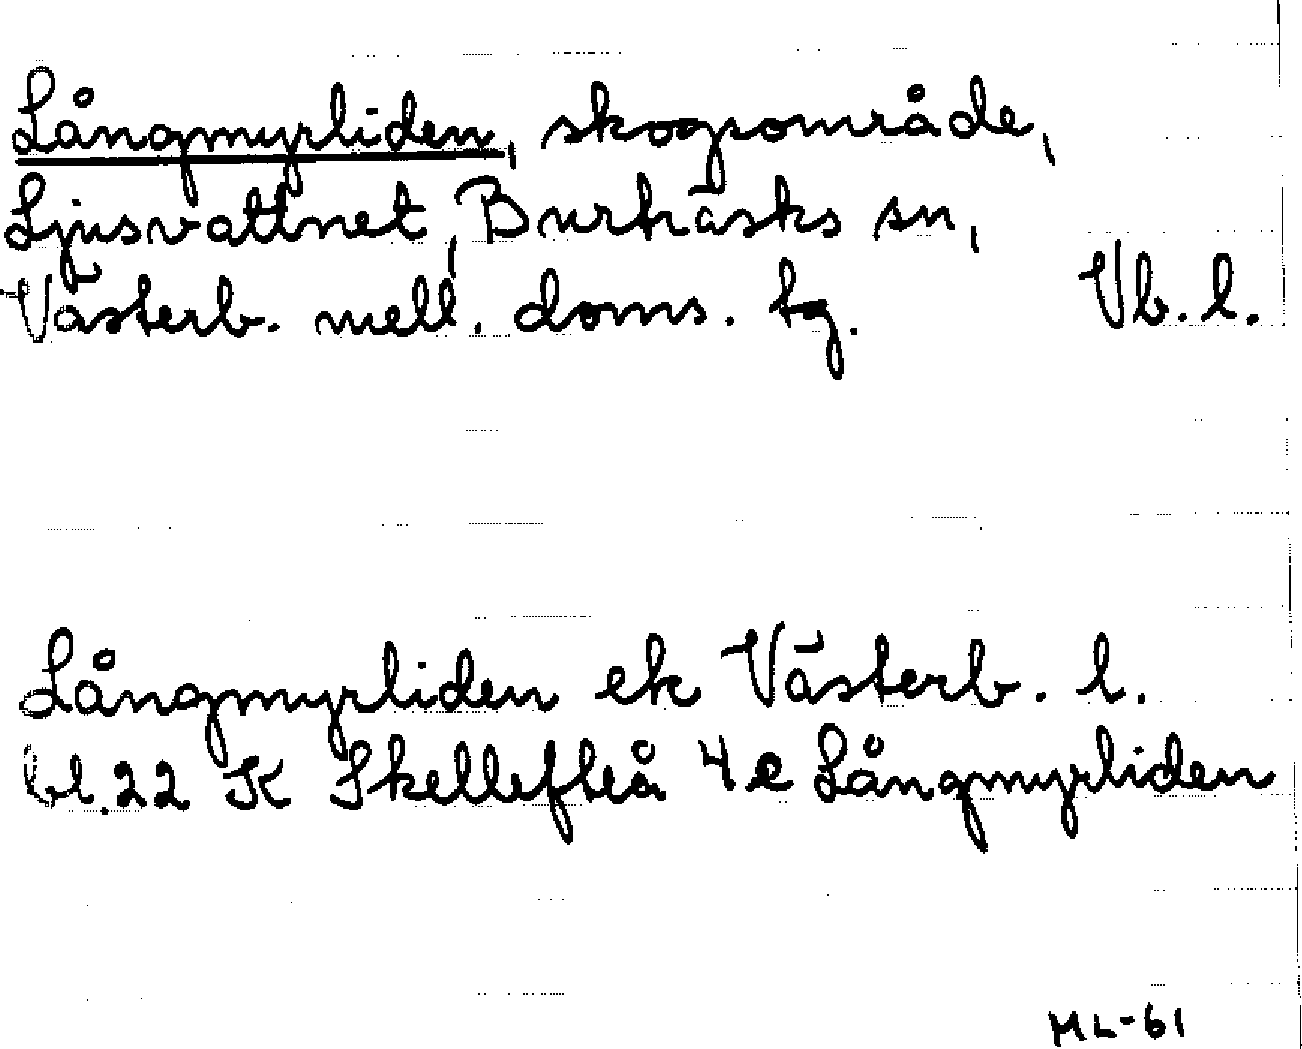 Långmyrliden, skogsområde,
Ljusvattnet, Burträsks sn,
Västerb. mell. doms. tg. Vb. l.
Långmyrliden ek Västerb. l.
bl. 22 K Skellefteå 4 e Långmyrliden
ML-61